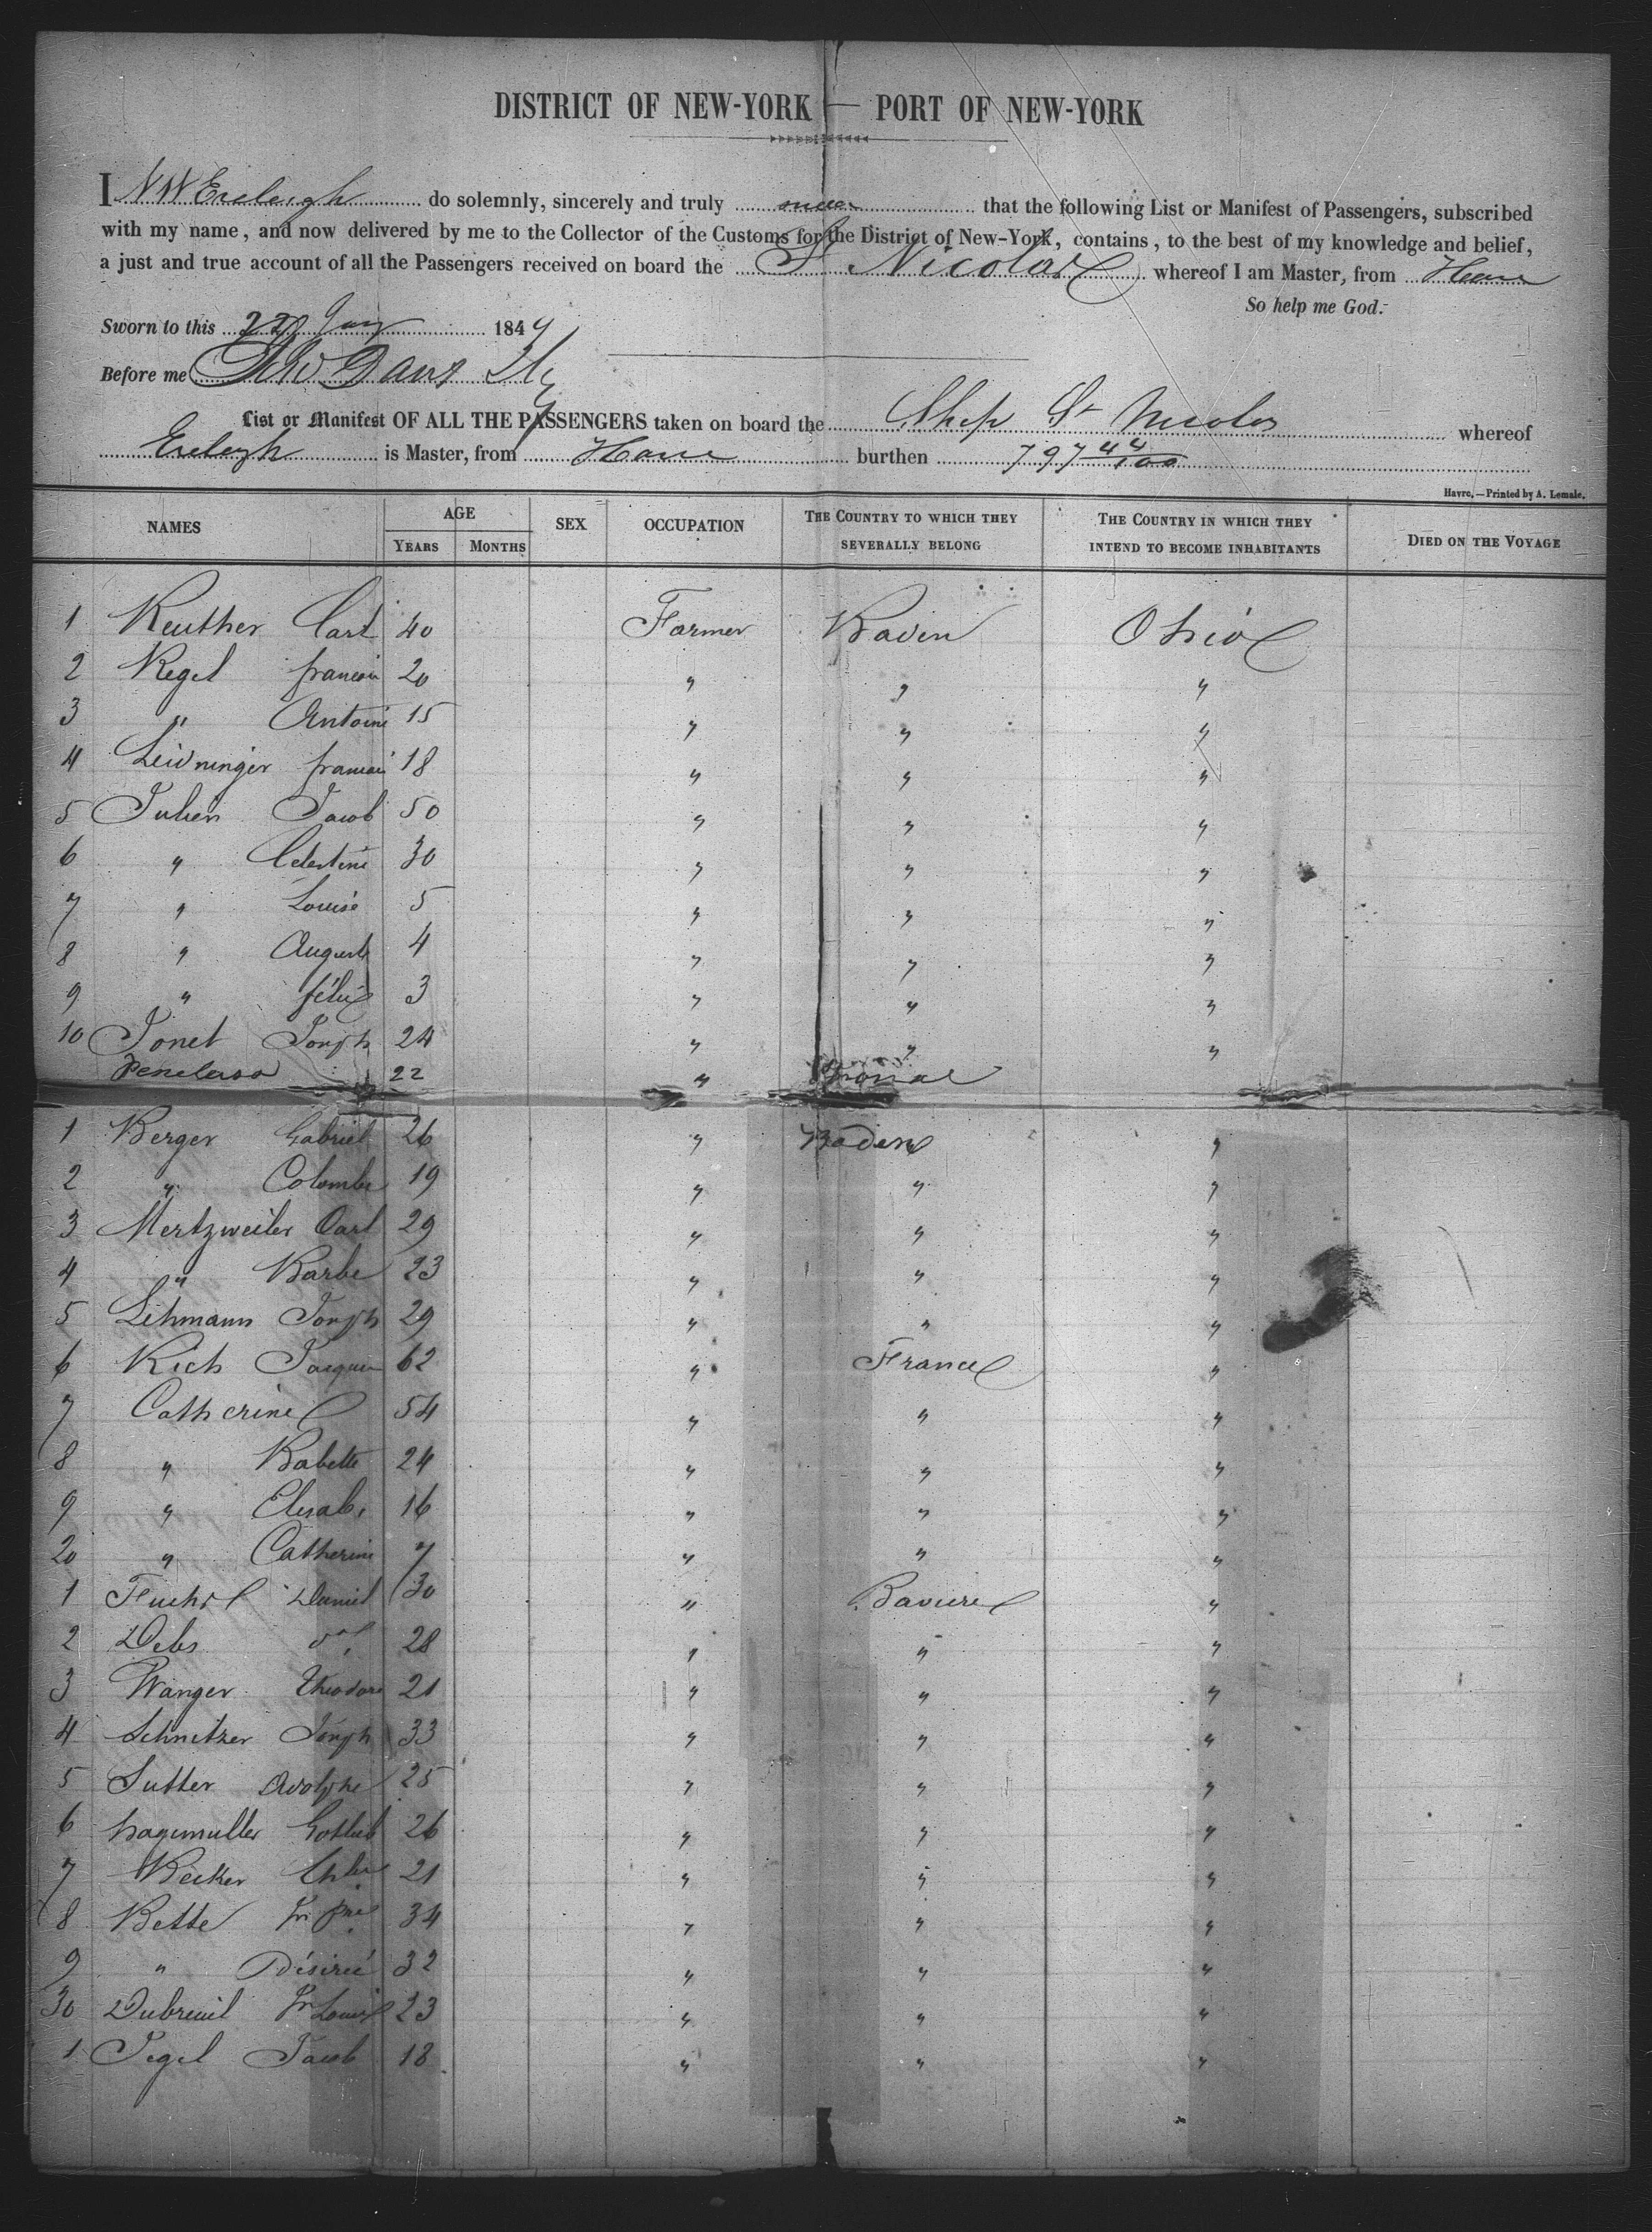 DISTRICT OF NEW-YORK — PORT OF NEW-YORK
I N W Eveleigh do solemnly, sincerely and truly swear that the following List or Manifest of Passengers, subscribed
with my name, and now delivered by me to the Collector of the Customs for the District of New-York, contains, to the best of my knowledge and belief,
a just and true account of all the Passengers received on board the St Nicolas whereof I am Master, from Havre
So help me God.
Sworn to this 22 Jany 1849
Before me
List or Manifest OF ALL THE PASSENGERS taken on board the Ship St Nicolas whereof
Eveleigh is Master, from Havre burthen 797 44/100
Havre.—Printed by A. Lemale.
NAMES AGE SEX OCCUPATION THE COUNTRY TO WHICH THEY SEVERALLY BELONG THE COUNTRY IN WHICH THEY INTEND TO BECOME INHABITANTS DIED ON THE VOYAGE
YEARS MONTHS
1 Reuther Carl 40 Farmer Baden Ohio
2 Regel francois 20 " " "
3 " Antoine 15 " " "
4 Leidninger francois 18 " " "
5 Julien Jacob 50 " " "
6 " Celestine 30 " " "
7 " Louise 5 " " "
8 " Auguste 4 " " "
9 " félix 3 " " "
10 Jonet Joseph 24 " " "
22 "
1 Berger Gabriel 26 " Baden "
2 " Colombe 19 " " "
3 Mertzweiler Carl 29 " " "
4 " Barbe 23 " " "
5 Lehmann Joseph 29 " " "
6 Rich Jacques 62 " France "
7 Catherine 54 " " "
8 " Babette 24 " " "
9 " Elisab. 16 " " "
20 " Catherine 7 " " "
1 Fuchs Daniel 30 " Baviere "
2 Debs Val. 28 " " "
3 Wanger Théodore 21 " " "
4 Schnetzer Joseph 33 " " "
5 Sutter Adolphe 25 " " "
6 hagemuller Gotlieb 26 " " "
7 Becker 21 " " "
8 Bette 34 " " "
9 " Désirée 32 " " "
30 Dubreuil Fr Louis 23 " " "
1 Jegel Jacob 18 " " "